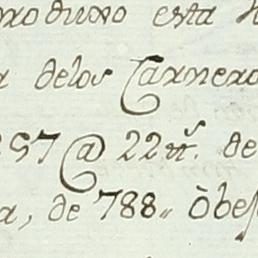 produxo esta
delos Carnero
257 @ 22 tt.s de
a, de 788,, òbes